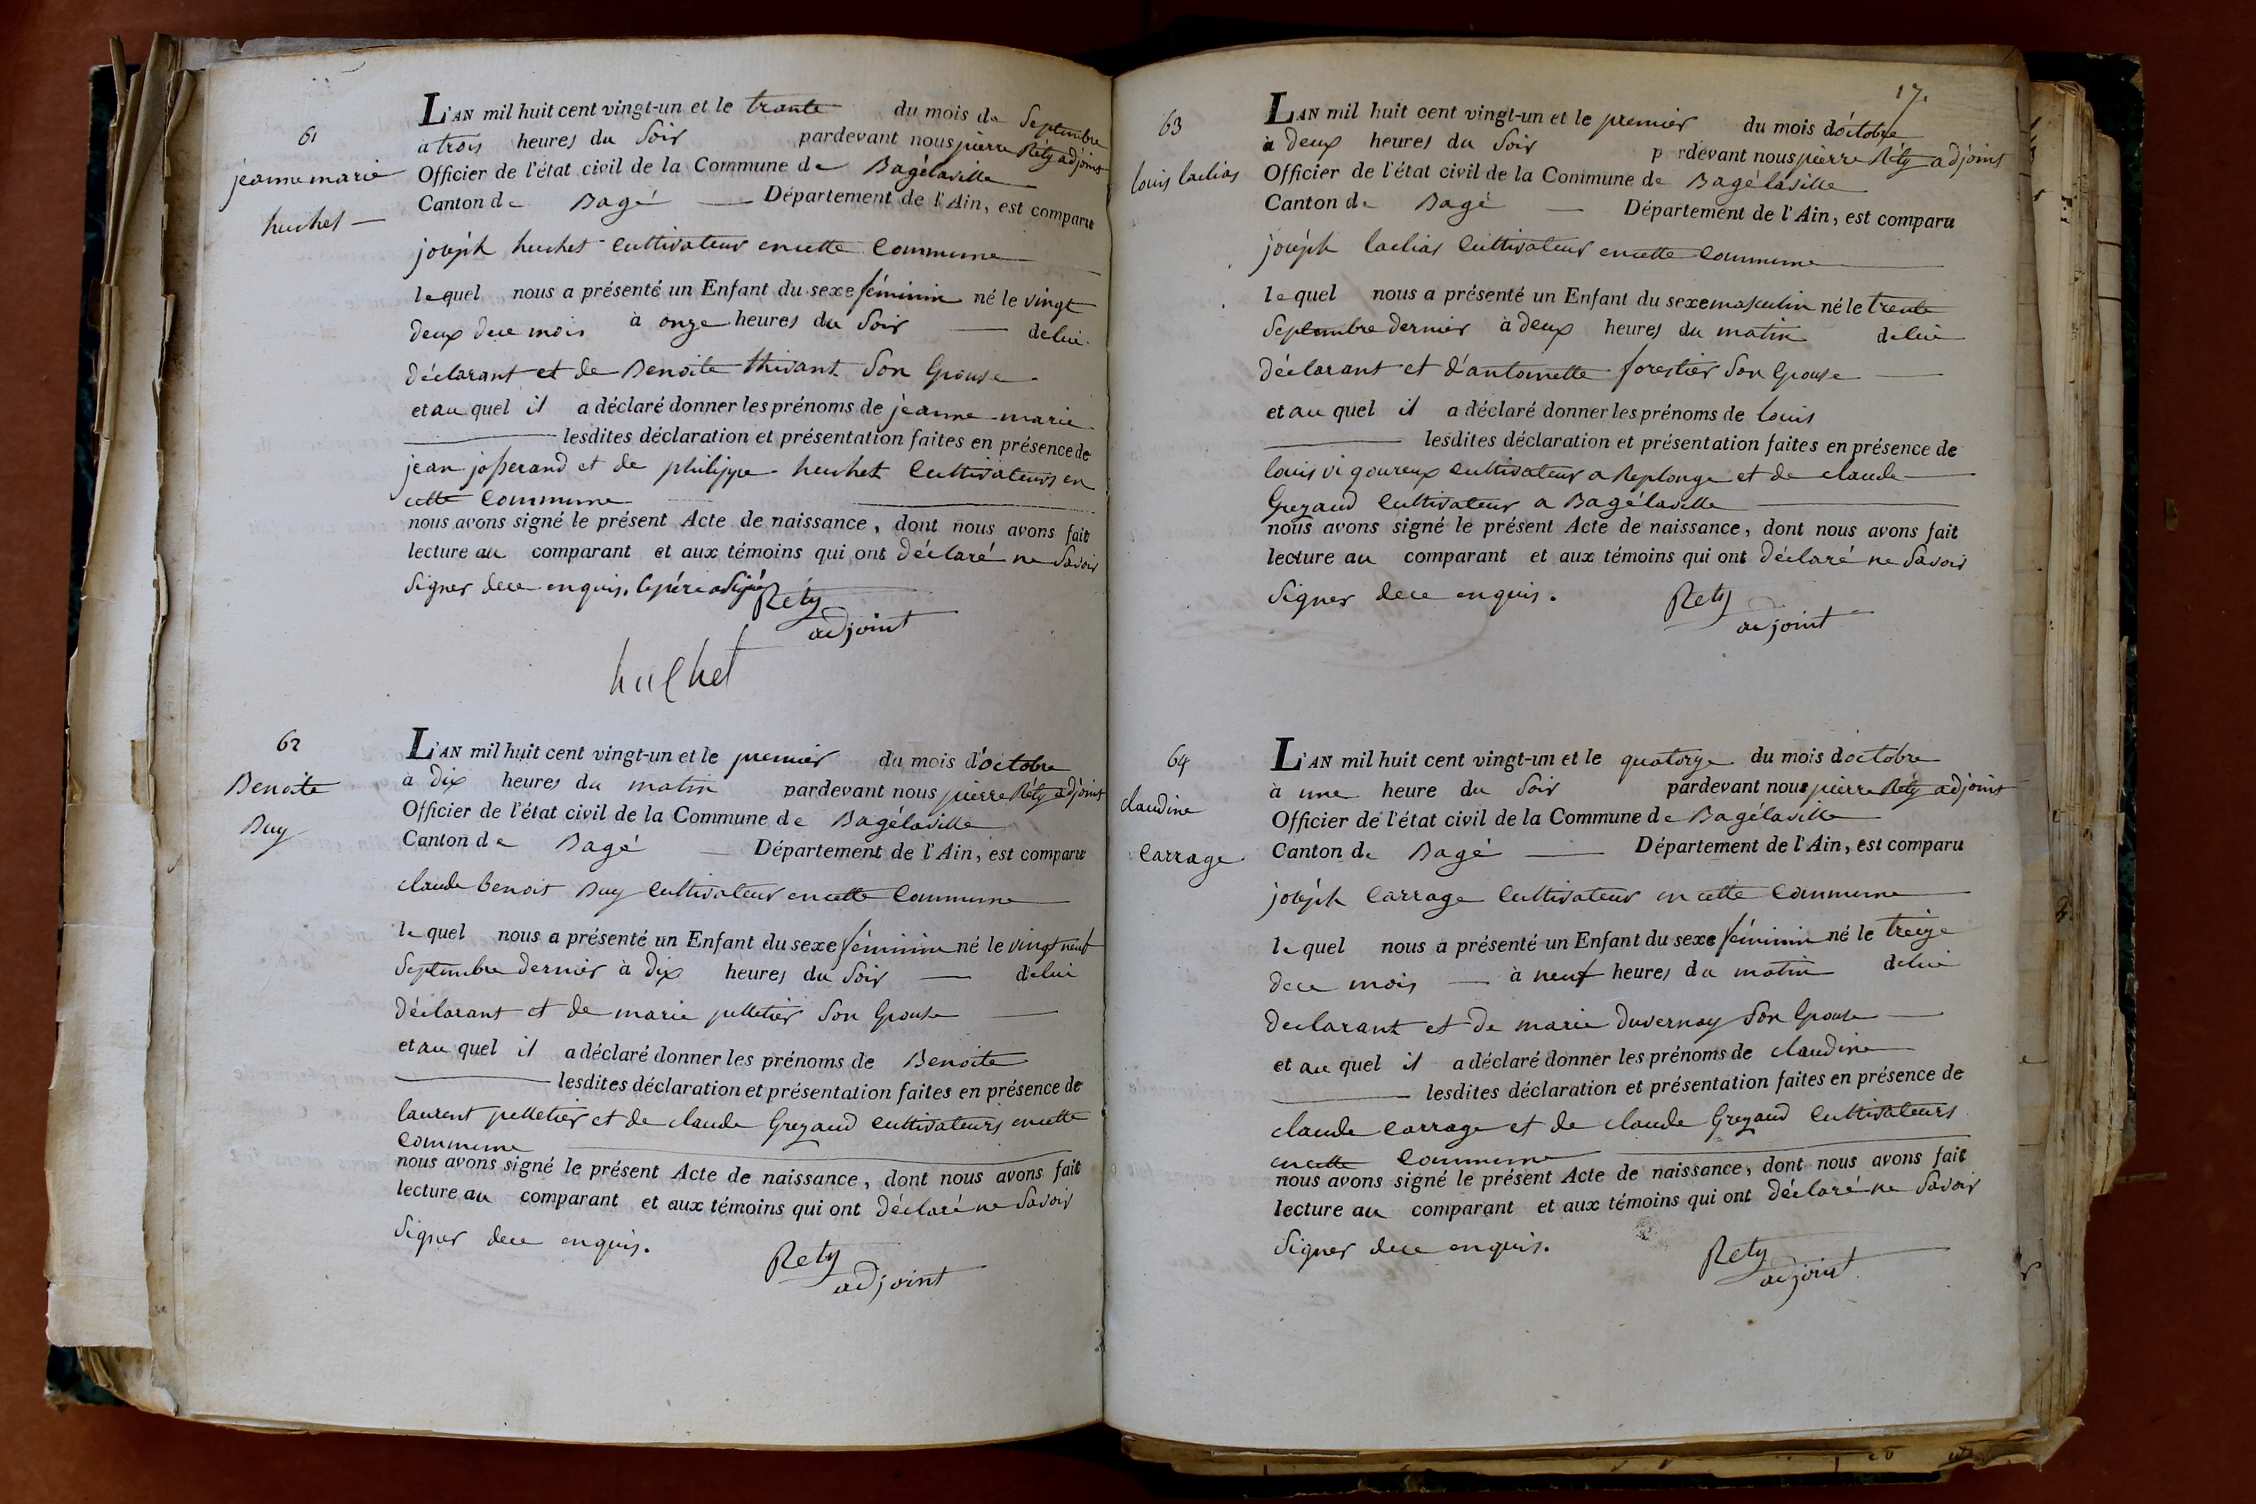 61
jeanne marie
huchet
L'AN mil huit cent vingt-un et le trante du mois de Septembre
a trois heures du Soir pardevant nous pierre Réty adjoint
Officier de l'état civil de la Commune de Bagélaville
Canton de Bagé Département de l'Ain, est comparu
joséph huchet Cultivateur en cette Commune
lequel nous a présenté un Enfant du sexe féminin né le vingt
deux de ce mois à onze heures du Soir de lui
déclarant et de Benoite thivant Son Epouse
et au quel il a déclaré donner les prénoms de jeanne-marie
lesdites déclaration et présentation faites en présence de
jean josserand et de philippe huchet Cultivateurs en
cette Commune
nous avons signé le présent Acte de naissance, dont nous avons fait
lecture au comparant et aux témoins qui ont déclaré ne Savoir
Signer de ce enquis, le pére a Signé
Réty
adjoint
huchet
62
Benoite
Buy
L'AN mil huit cent vingt-un et le premier du mois d'octobre
à Dix heures du matin pardevant nous pierre Réty adjoint
Officier de l'état civil de la Commune de Bagélaville
Canton de Bagé Département de l'Ain, est comparu
claude benoit Buy Cultivateur en cette Commune
lequel nous a présenté un Enfant du sexe féminin né le vingt neuf
Septembre dernier à Dix heures du Soir de lui
déclarant et de marie pelletier Son Epouse
et au quel il a déclaré donner les prénoms de Benoite
lesdites déclaration et présentation faites en présence de
laurent pelletier et de claude Grezaud Cultivateurs en cette
Commune
nous avons signé le présent Acte de naissance, dont nous avons fait
lecture au comparant et aux témoins qui ont déclaré ne Savoir
Signer de ce enquis.
Rety
adjoint
17.
63
louis laclias
L'AN mil huit cent vingt-un et le premier du mois d'octobre
à Deux heures du Soir p rdevant nous pierre Réty adjoint
Officier de l'état civil de la Commune de Bagélaville
Canton de Bagé Département de l'Ain, est comparu
joséph laclias Cultivateur en cette Commune
lequel nous a présenté un Enfant du sexe masculin né le trente
Septembre dernier à deux heures du matin de lui
déclarant et d'antoinette forestier Son Epouse
et au quel il a déclaré donner les prénoms de louis
lesdites déclaration et présentation faites en présence de
louis vigoureux Cultivateur a Replonge et de claude
Grezaud Cultivateur a Bagélaville
nous avons signé le présent Acte de naissance, dont nous avons fait
lecture au comparant et aux témoins qui ont déclaré ne Savoir
Signer de ce enquis.
Rety
adjoint
64
claudine
Carrage
L'AN mil huit cent vingt-un et le quatorze du mois d'octobre
à une heure du Soir pardevant nous pierre Réty adjoint
Officier de l'état civil de la Commune de Bagélaville
Canton de Bagé Département de l'Ain, est comparu
joséph Carrage Cultivateur en cette Commune
lequel nous a présenté un Enfant du sexe féminin né le treize
de ce mois à neuf heures du matin de lui
declarant et de marie Duvernay Son Epouse
et au quel il a déclaré donner les prénoms de claudine
lesdites déclaration et présentation faites en présence de
claude Carrage et de claude Grezaud Cultivateurs
en cette Commune
nous avons signé le présent Acte de naissance, dont nous avons fait
lecture au comparant et aux témoins qui ont déclaré ne Savoir
Signer de ce enquis.
Rety
adjoint